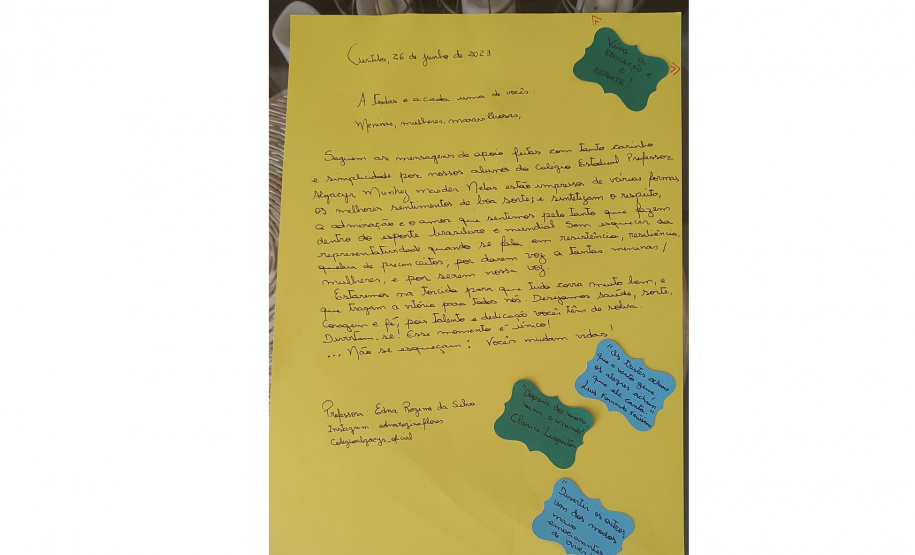 Curitiba, 26 de junho de 2023
Viva a
EDUCAÇÃO e
O
ESPORTE!
A todas e a cada uma de vocês:
Meninas, mulheres, maravilhosas,
Seguem as mensagens de apoio feitas com tanto carinho
e simplicidade por nossos alunos do Colégio Estadual Professor
Algacyr Munhoz Maeder. Nelas estão impressos de várias formas,
os melhores sentimentos de boa sorte; e sintetizam o respeito,
a admiração e o amor que sentimos pelo tanto que fazem
dentro do esporte brasileiro e mundial. Sem esquecer da
representatividade quando se fala em resistência, resiliência,
quebra de preconceitos, por darem voz a tantas meninas/
mulheres, e por serem nossa voz.
Estaremos na torcida para que tudo corra muito bem, e
que tragam a vitória para todos nós. Desejamos saúde, sorte,
coragem e fé, pois talento e dedicação vocês têm de sobra.
Divirtam-se! Esse momento é único!
... Não se esqueçam: Vocês mudam vidas!
"Os tristes acham
que o vento geme,
os alegres acham
que ele canta."
Luis Fernando Veríssimo
Professora: Edna Regina da Silva
Instagam: ednareginaflores
Colegioalgacyr_oficial
"Depois do medo,
vem o mundo"
Clarice Lispector
"Divertir os outros,
um dos modos
mais
emocionantes
de existir